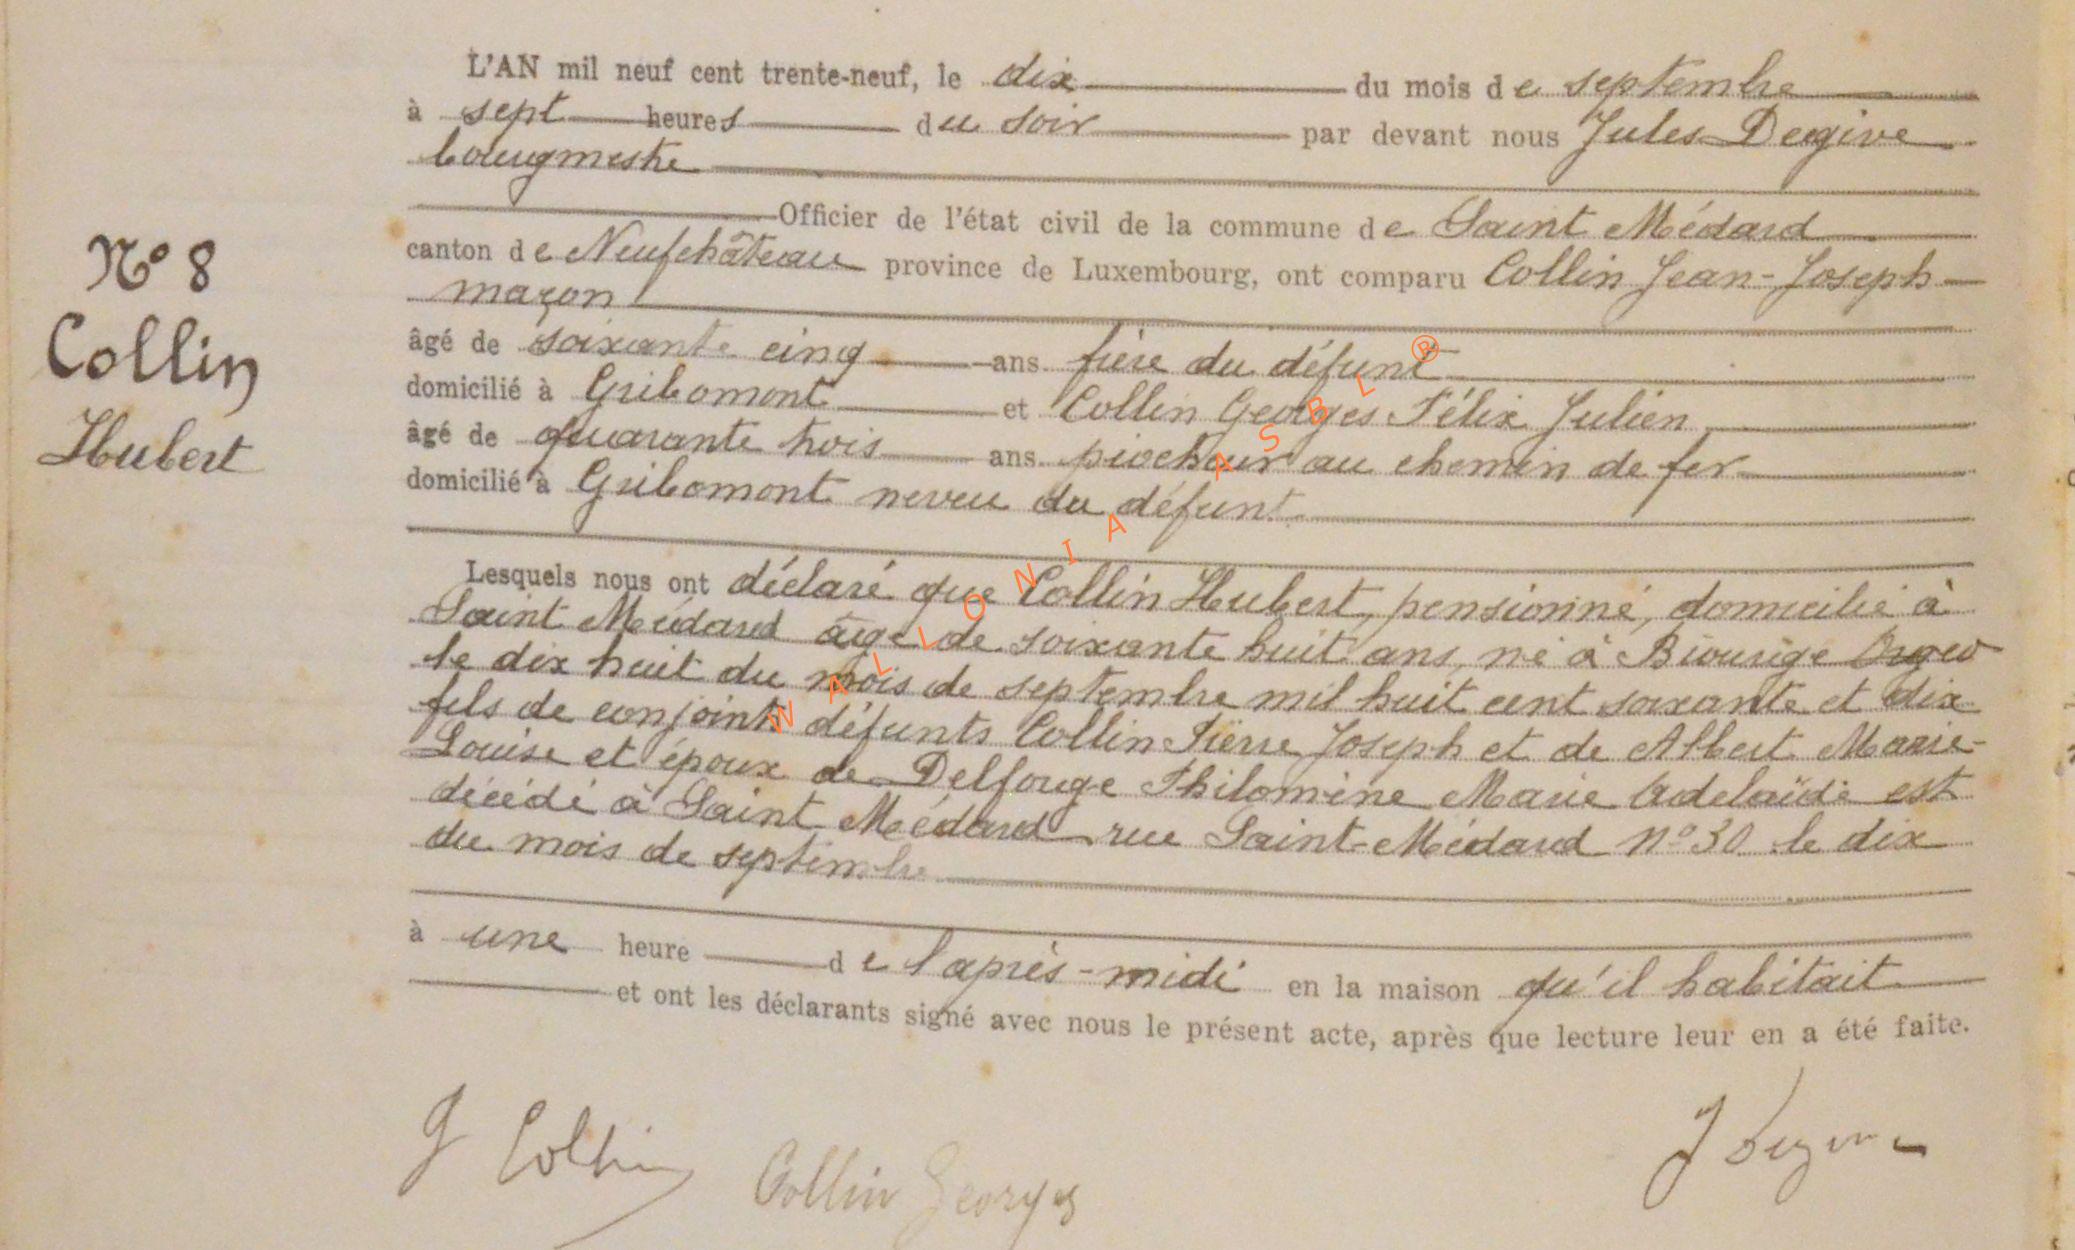 N° 8
Collin
Hubert
L'AN mil neuf cent trente-neuf, le dix du mois de septembre
à sept heures du soir par devant nous Jules Degive
bourgmestre
Officier de l'état civil de la commune de Saint Médard
canton de Neufchâteau province de Luxembourg, ont comparu Collin Jean-Joseph
maçon
âgé de soixante cinq ans frère du défunt
domicilié à Gribomont et Collin Georges Félix Julien
âgé de quarante trois ans piocheur au chemin de fer
domicilié à Gribomont neveu du défunt
Lesquels nous ont déclaré que Collin Hubert, pensionné, domicilié à
Saint Médard âgé de soixante huit ans, né à Biourge Orgeo
le dix huit du mois de septembre mil huit cent soixante et dix
fils de conjoints défunts Collin Pierre Joseph et de Albert Marie-
Louise et époux de Delfouge Philomène Marie Adelaïde est
décédé à Saint Médard rue Saint-Médard n° 30 le dix
du mois de septembre
à une heure de l'après-midi en la maison qu'il habitait
et ont les déclarants signé avec nous le présent acte, après que lecture leur en a été faite.
J Collin Collin Georges J Degive
WALLONIA ASBL ®